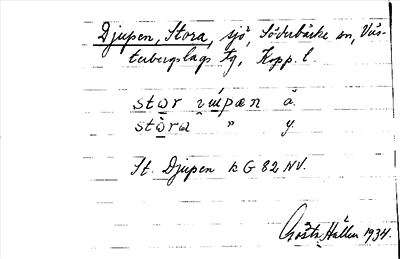 Djupen, Stora, sjö, Söderbärke sn, Väs-
terbergslags tg, Kopp. l.
stor ɪɯpæn ä.
stòra " y.
St. Djupen k G 82 NV.
Gösta Hallén 1934.